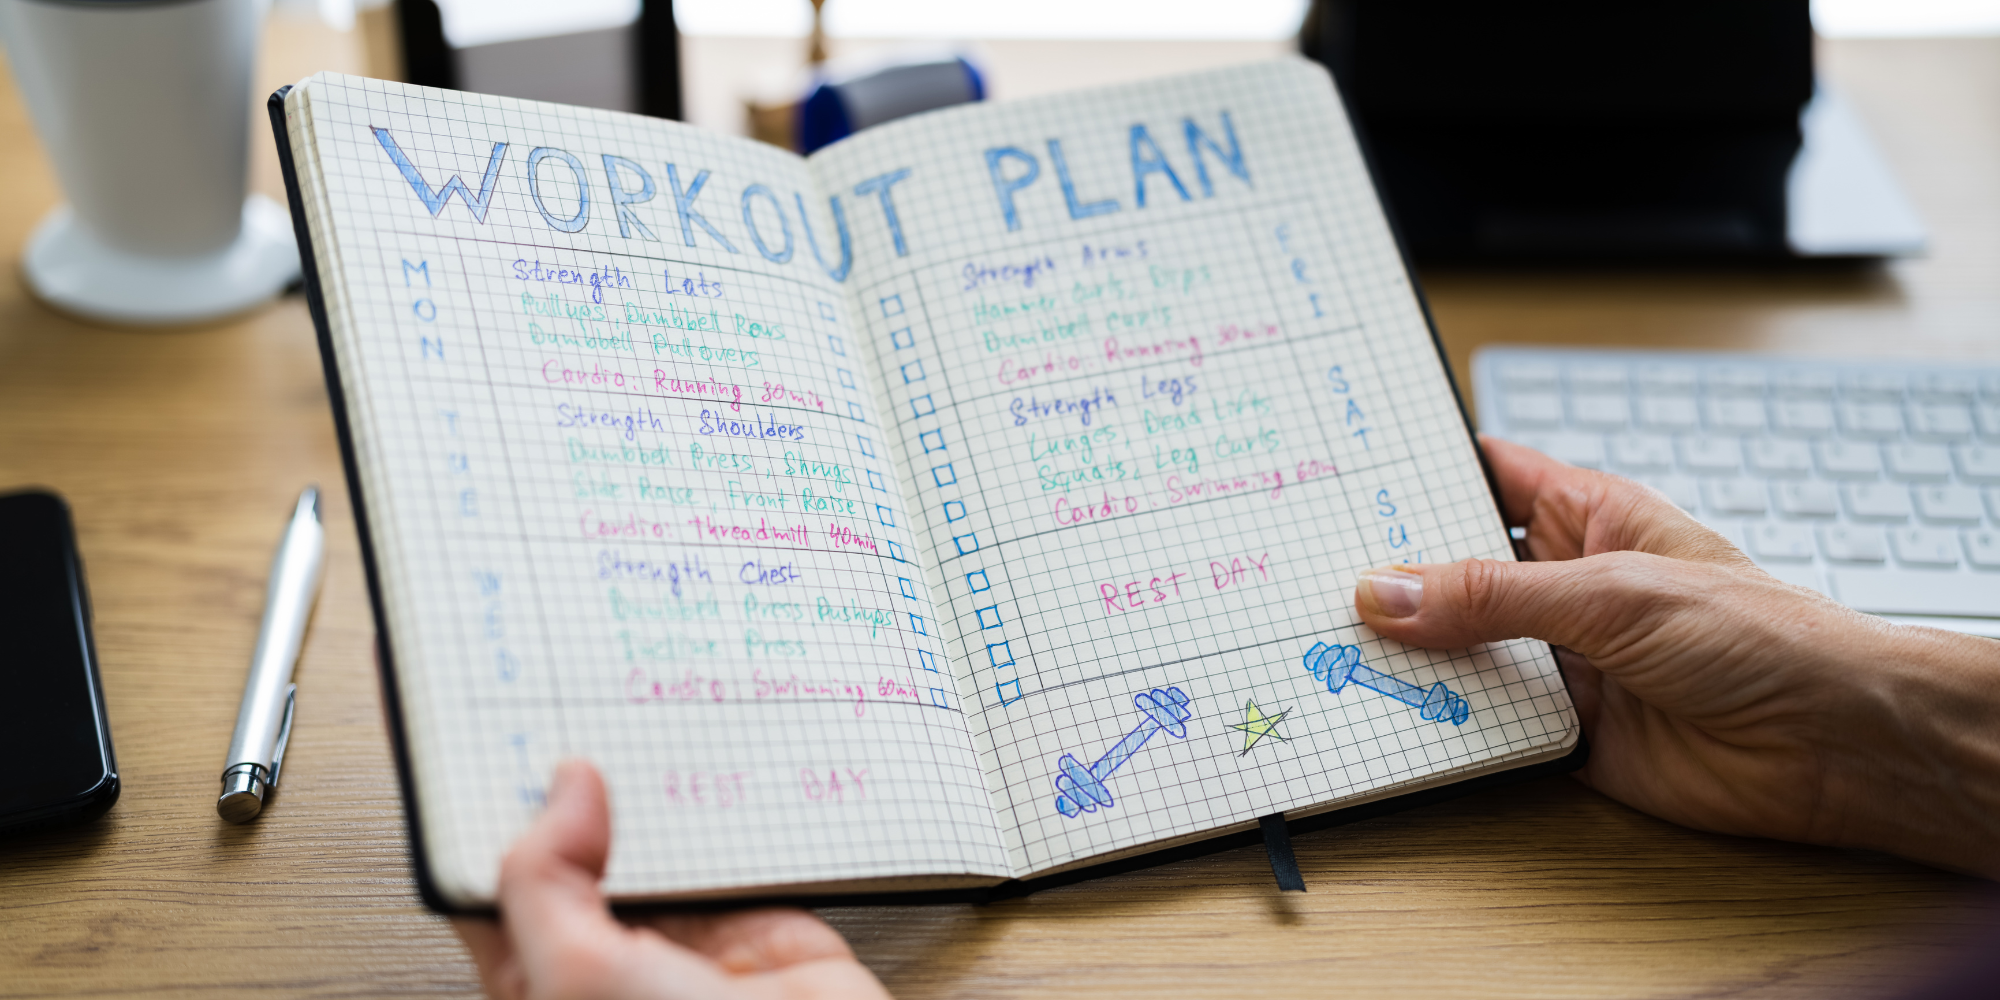 WORKOUT PLAN
MON
Strength Lats
Pullups, Dumbbell Rows
Dumbbell Pullovers
Cardio: Running 30min
TUE
Strength Shoulders
Dumbbell Press, Shrugs
Side Raise, Front Raise
Cardio: Threadmill 40min
WED
Strength Chest
Dumbbell Press Pushups
Press
Cardio: Swimming 60min
REST DAY
FRI
Strength Arms
Hammer Curls, Dips
Dumbbell Curls
Cardio: Running 30min
SAT
Strength Legs
Lunges, Dead Lifts
Squats, Leg Curls
Cardio: Swimming 60m
SU
REST DAY